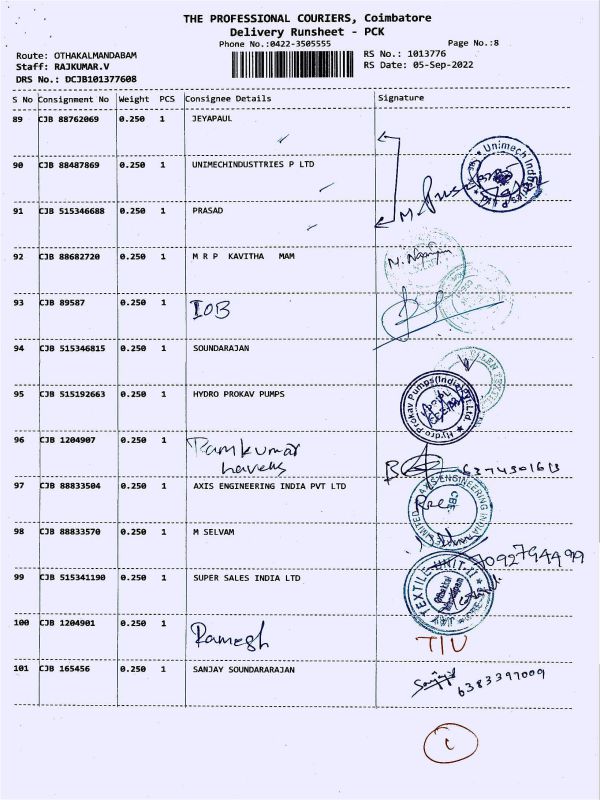 THE PROFESSIONAL COURIERS, Coimbatore
Delivery Runsheet - PCK
Phone No.:0422-3505555
Page No.:8
Route: OTHAKALMANDABAM
RS No.: 1013776
Staff: RAJKUMAR.V
RS Date: 05-Sep-2022
DRS No.: DCJB101377608
S No Consignment No Weight PCS Consignee Details Signature
89 CJB 88762069 0.250 1 JEYAPAUL
90 CJB 88487869 0.250 1 UNIMECHINDUSTTRIES P LTD
Unimech Industries P Ltd
91 CJB 515346688 0.250 1 PRASAD
M.
92 CJB 88682720 0.250 1 M R P KAVITHA MAM
93 CJB 89587 0.250 1 IOB
94 CJB 515346815 0.250 1 SOUNDARAJAN
95 CJB 515192663 0.250 1 HYDRO PROKAV PUMPS
Hydro Prokav Pumps(India)Pvt.Ltd.
96 CJB 1204907 0.250 1 Ramkumar
havells
6374301613
97 CJB 88833504 0.250 1 AXIS ENGINEERING INDIA PVT LTD
AXIS ENGINEERING INDIA
CBE
LIMITED
98 CJB 88833570 0.250 1 M SELVAM
7092794499
99 CJB 515341190 0.250 1 SUPER SALES INDIA LTD
JAY TEXTILE UNIT-II
100 CJB 1204901 0.250 1 Ramesh
101 CJB 165456 0.250 1 SANJAY SOUNDARARAJAN
Sanjay
6383397009